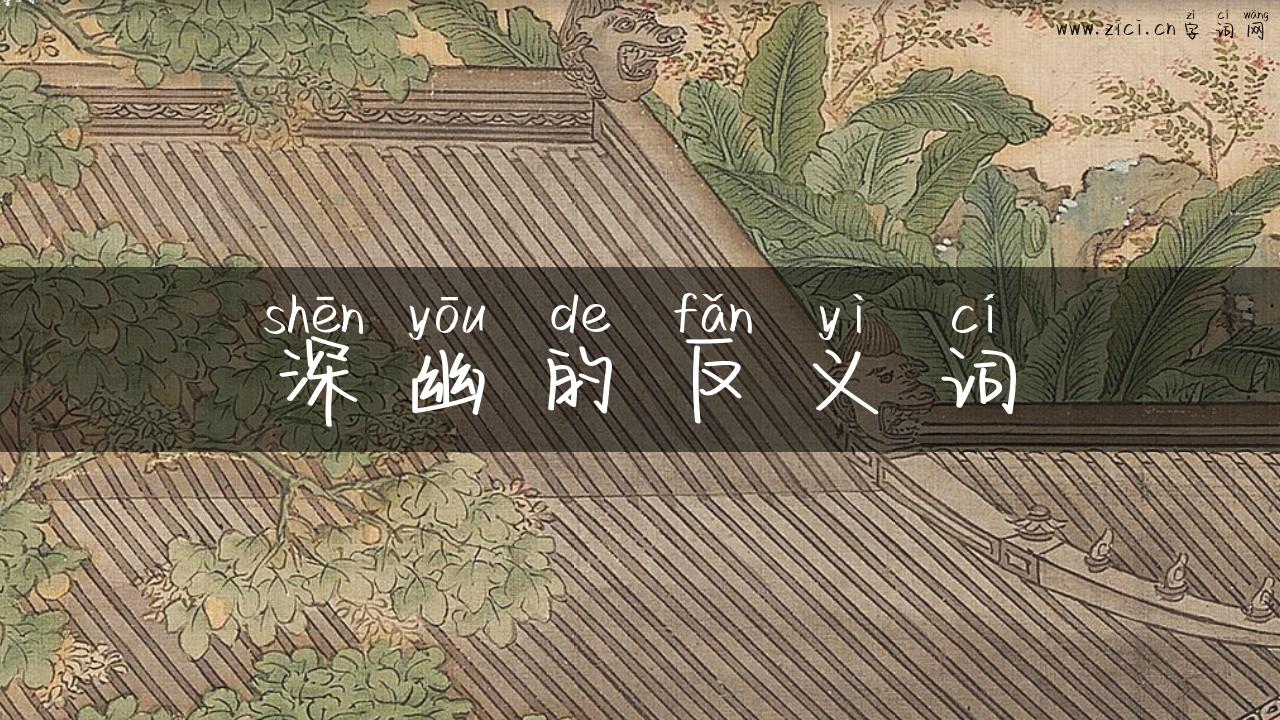 zì cí wǎng
www.zici.cn 字词网
shēn yōu de fǎn yì cí
深幽的反义词